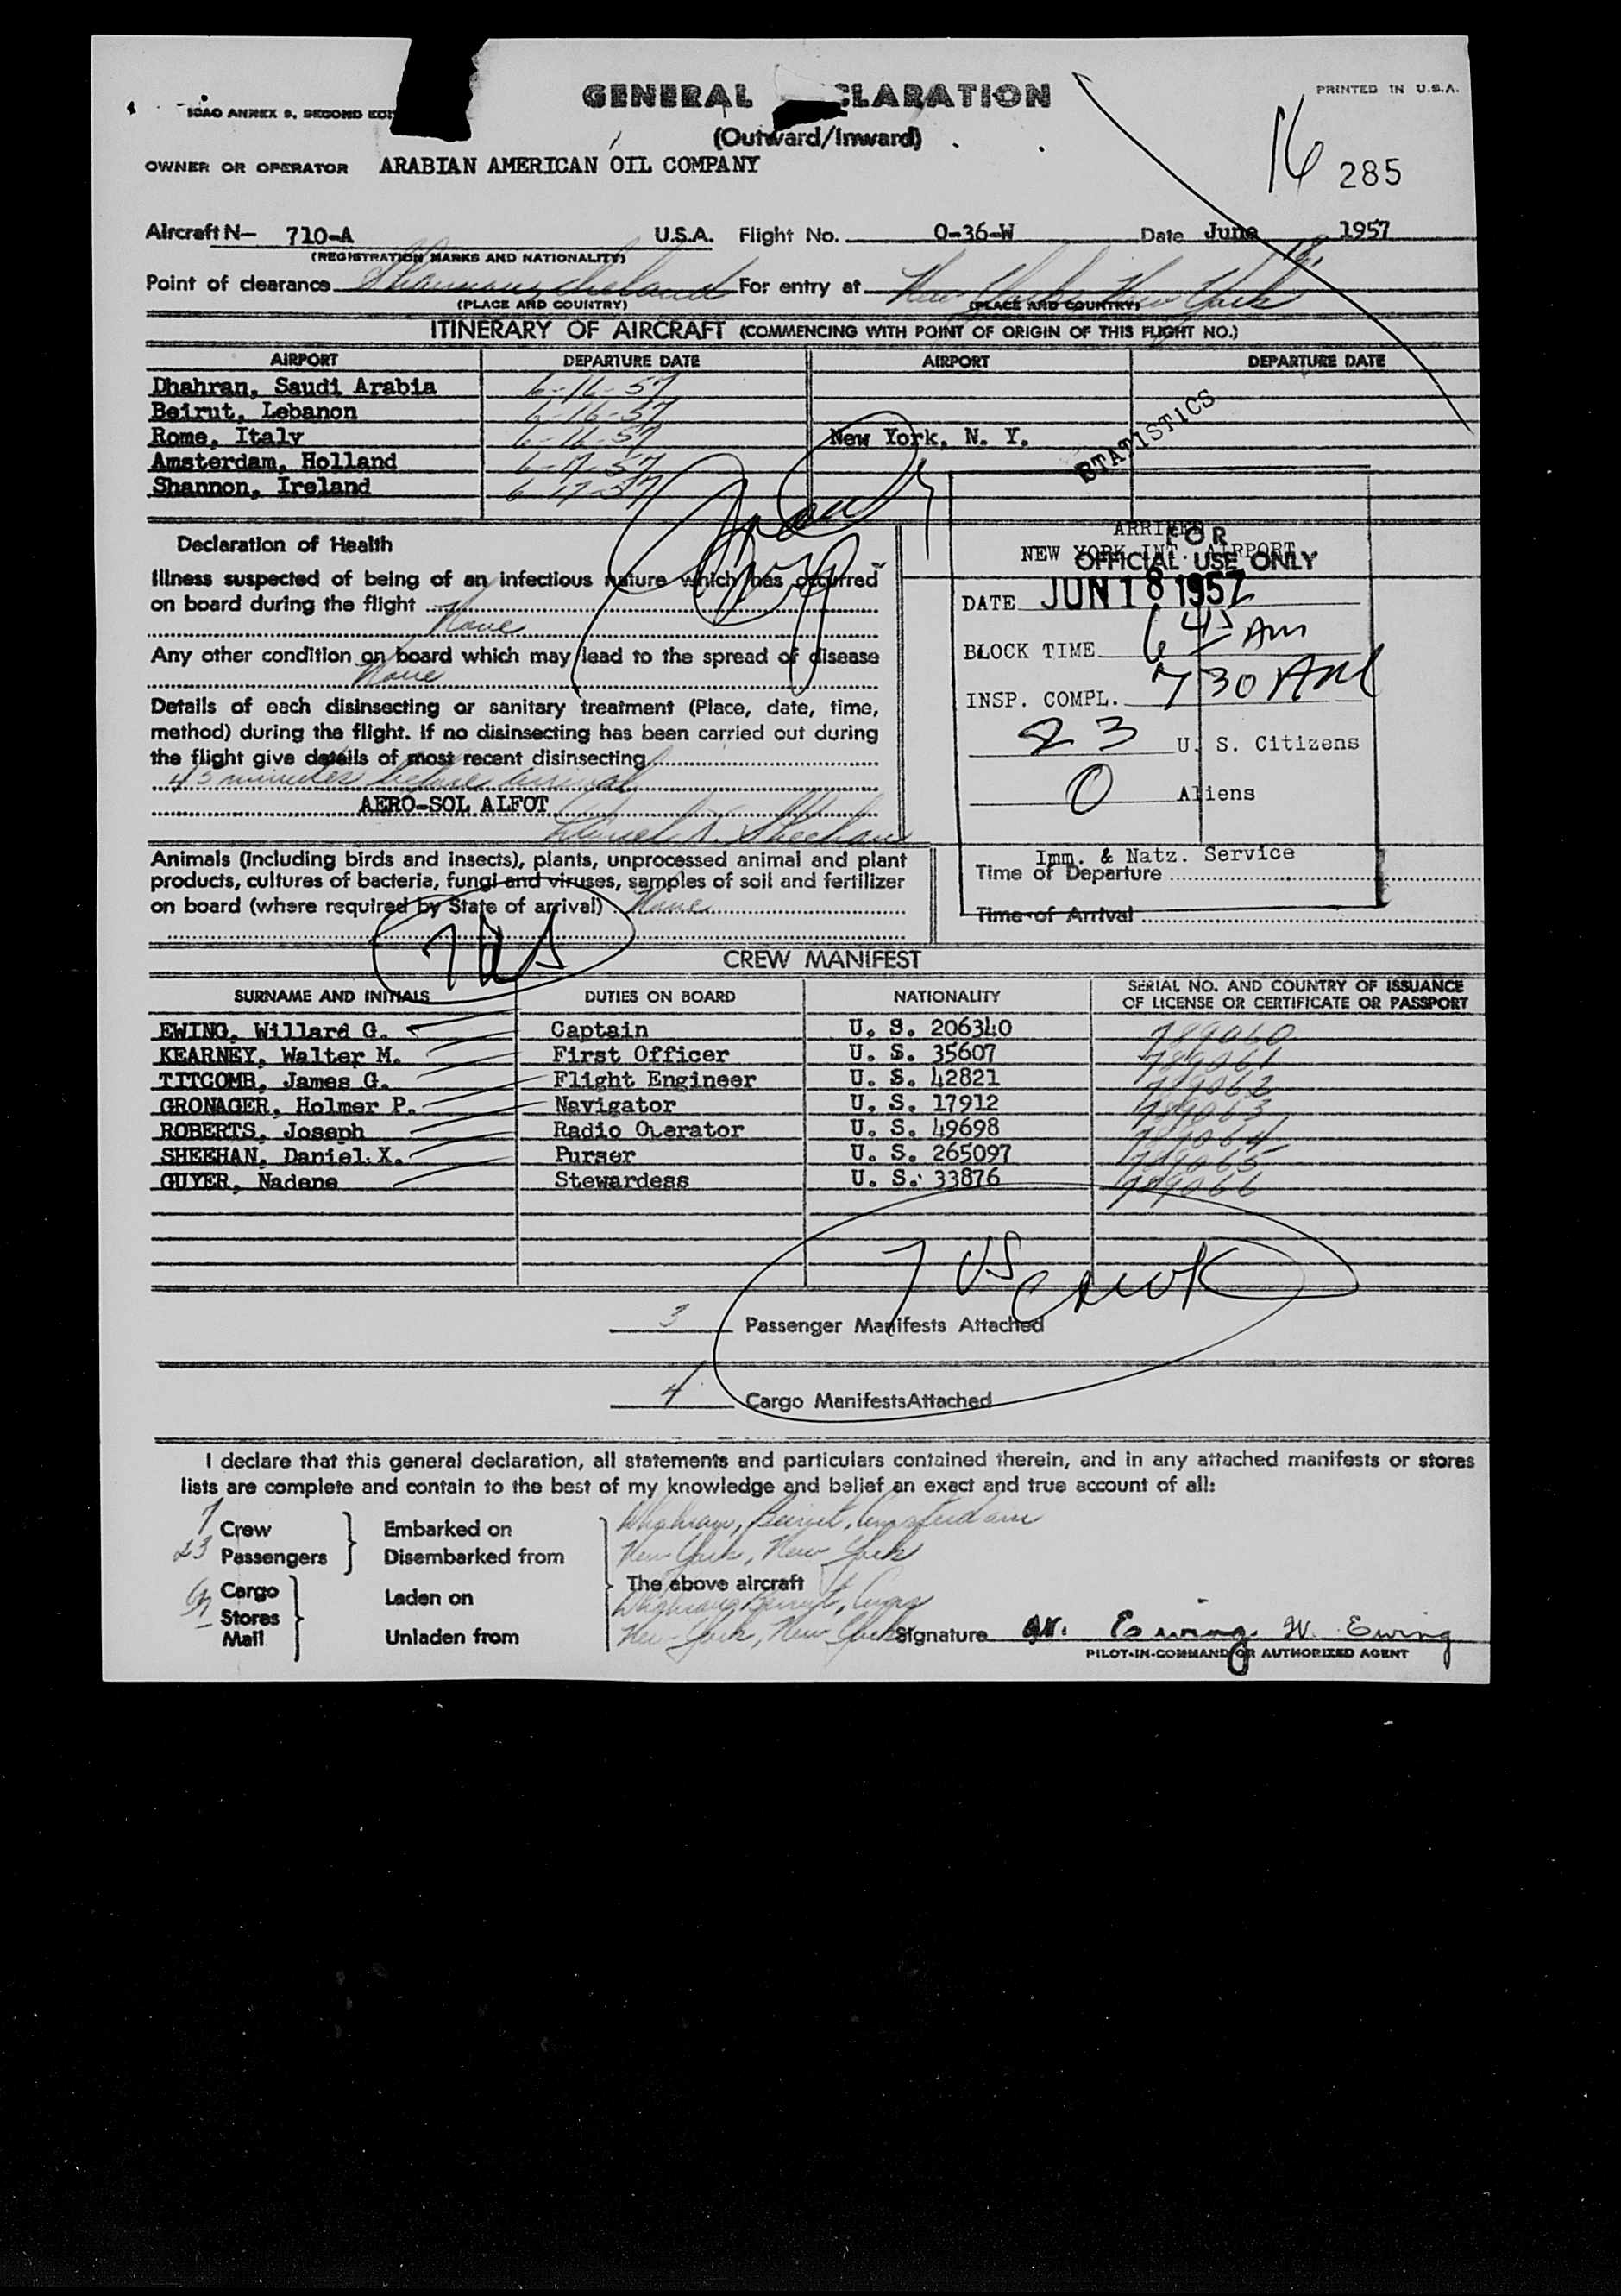 ICAO ANNEX 9, SECOND EDI
GENERAL CLARATION
PRINTED IN U.S.A.
(Outward/Inward)
16 285
OWNER OR OPERATOR ARABIAN AMERICAN OIL COMPANY
Aircraft N- 710-A U.S.A. Flight No. 0-36-W Date June 1957
(REGISTRATION MARKS AND NATIONALITY)
Point of clearance Shannon, Ireland For entry at New York, New York
(PLACE AND COUNTRY) (PLACE AND COUNTRY)
ITINERARY OF AIRCRAFT (COMMENCING WITH POINT OF ORIGIN OF THIS FLIGHT NO.)
AIRPORT DEPARTURE DATE AIRPORT DEPARTURE DATE
Dhahran, Saudi Arabia 6-16-57
Beirut, Lebanon 6-16-57
Rome, Italy 6-16-57 New York, N. Y.
Amsterdam, Holland 6-17-57
Shannon, Ireland 6-17-57
STATISTICS
Declaration of Health
Illness suspected of being of an infectious nature which has occurred
on board during the flight
None
Any other condition on board which may lead to the spread of disease
None
Details of each disinsecting or sanitary treatment (Place, date, time,
method) during the flight. If no disinsecting has been carried out during
the flight give details of most recent disinsecting
45 minutes before arrival
AERO-SOL ALFOT
Daniel X. Sheehan
ARRIVED
FOR
NEW YORK INT. AIRPORT
OFFICIAL USE ONLY
DATE JUN 18 1957
BLOCK TIME 6 45 AM
INSP. COMPL. 7 30 AM
23 U. S. Citizens
0 Aliens
Imm. & Natz. Service
Time of Departure
Time of Arrival
Animals (including birds and insects), plants, unprocessed animal and plant
products, cultures of bacteria, fungi and viruses, samples of soil and fertilizer
on board (where required by State of arrival) None
CREW MANIFEST
SURNAME AND INITIALS DUTIES ON BOARD NATIONALITY SERIAL NO. AND COUNTRY OF ISSUANCE
OF LICENSE OR CERTIFICATE OR PASSPORT
EWING, Willard G. Captain U. S. 206340 789060
KEARNEY, Walter M. First Officer U. S. 35607 789061
TITCOMB, James G. Flight Engineer U. S. 42821 789062
GRONAGER, Holmer P. Navigator U. S. 17912 789063
ROBERTS, Joseph Radio Operator U. S. 49698 789064
SHEEHAN, Daniel X. Purser U. S. 265097 789065
GUYER, Nadene Stewardess U. S. 33876 789066
7 US
3 Passenger Manifests Attached
4 Cargo Manifests Attached
I declare that this general declaration, all statements and particulars contained therein, and in any attached manifests or stores
lists are complete and contain to the best of my knowledge and belief an exact and true account of all:
7 Crew Embarked on Dhahran, Beirut, Amsterdam
23 Passengers Disembarked from New York, New York
The above aircraft
Cargo Laden on Dhahran, Beirut, Ams
Stores
Mail Unladen from New York, New York
Signature W. Ewing W. Ewing
PILOT-IN-COMMAND OR AUTHORIZED AGENT